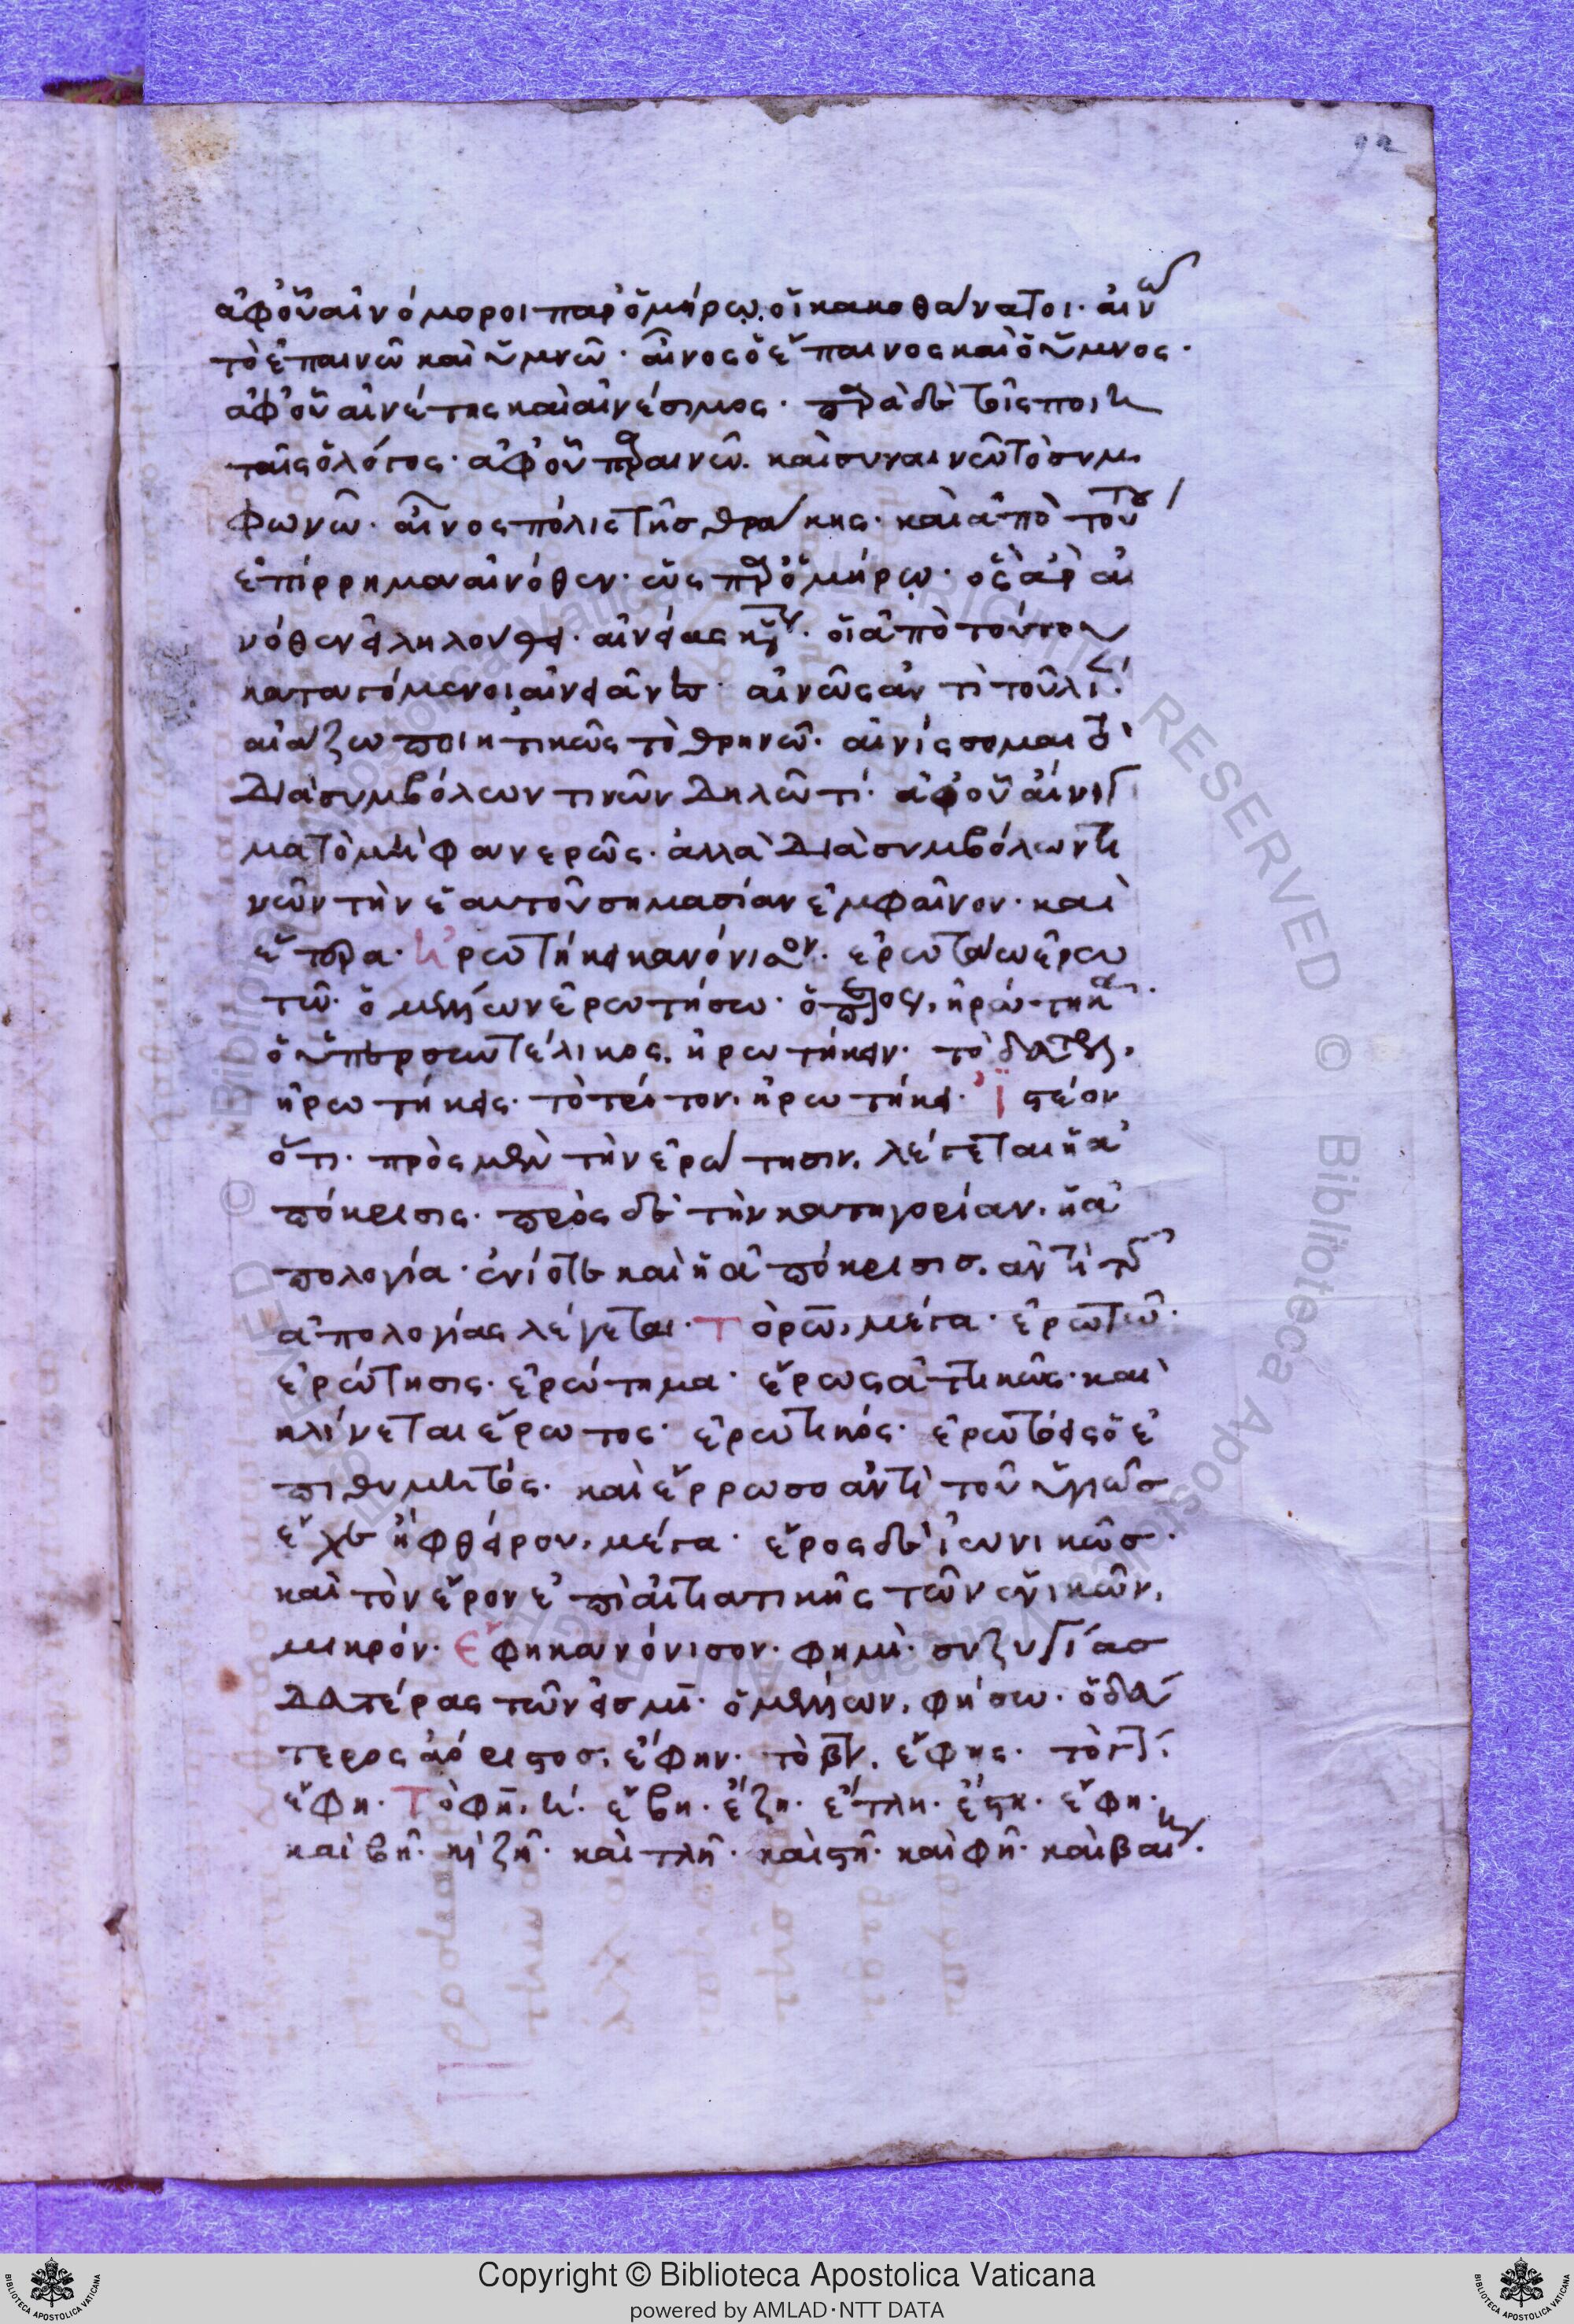 92
ἀφ' οὗ αἰνόμοροι παρ' ὁμήρω, οἱ κακοθάνατοι· αἰνῶ
τὸ ἐπαινῶ καὶ ὑμνῶ· αἶνος ὁ ἔπαινος καὶ ὁ ὕμνος·
ἀφ' οὗ αἰνέτης καὶ αἰνέσιμος· παρὰ δὲ τοῖς ποιη
ταῖς ὁ λόγος· ἀφ' οὗ παραινῶ. καὶ συναινῶ τὸ συμ
φωνῶ· αἶνος πόλις τῆς θράκης· καὶ ἀπὸ τού του
ἐπίρρημα αἰνόθεν· ὡς παρ' ὁμήρω· ὃς ἄρ' αἰ
νόθεν
καταγόμενοι αἰνειᾶται αἰνῶς ἀντὶ τοῦ λίαν·
αἰάζω ποιητικῶς τὸ θρηνῶ· αἰνίσσομαι τὸ
διὰ συμβόλων τινῶν δηλῶ τί· ἀφ' οὗ αἴνιγ
μα τὸ μὴ φανερῶς· ἀλλὰ διὰ συμβόλων τι
νῶν τὴν ἑαυτοῦ σημασίαν ἐμφαῖνον· καὶ
ἕτερα· ἠρώτηκα κανόνισον· ἐρωτάω ἐρω
τῶ· ὁ μέλλων ἐρωτήσω· ὁ ἠρώτηκα·
ὁ ὑπερσυντέλικος, ἠρωτήκειν· τὸ δεύτερον,
ἠρωτήκεις· τὸ τρίτον, ἠρωτήκει· ἰστέον
ὅτι· πρὸς μὲν τὴν ἐρώτησιν, λέγεται ἡ ἀ
πόκρισις· πρὸς δὲ τὴν κατηγορίαν, ἡ ἀ
πολογία· ἐνίοτε καὶ ἡ ἀπόκρισις, ἀντὶ τῆς
ἀπολογίας λέγεται· τὸ ρω, μέγα· ἐρωτῶ·
ἐρώτησις· ἐρώτημα· ἔρως ἀττικῶς· καὶ
κλίνεται ἔρωτος· ἐρωτικός· ἐρωτόεις ὁ ἐ
πιθυμητός· καὶ ἔρρωσο ἀντὶ τοῦ ὑγιῶς
ἔχε ἢ φθείρου, μέγα· ἔρος δὲ ἰωνικῶς·
καὶ τὸν ἔρον ἐπὶ αἰτιατικῆς τῶν ἑνικῶν,
μικρόν· ἔφη κανόνισον· φημὶ· συζυγίας
δευτέρας τῶν εἰς μι· ὁ μέλλων, φήσω· ὁ δεύ
τερος ἀόριστος, ἔφην· τὸ β, ἔφης· τὸ γ,
ἔφη· τὸ φη, η· ἔβη· ἔζη· ἔτλη· ἔστη· ἔφη·
καὶ βῆ· καὶ ζῆ· καὶ τλῆ· καὶ στῆ· καὶ φῆ· καὶ
Copyright © Biblioteca Apostolica Vaticana
powered by AMLAD·NTT DATA